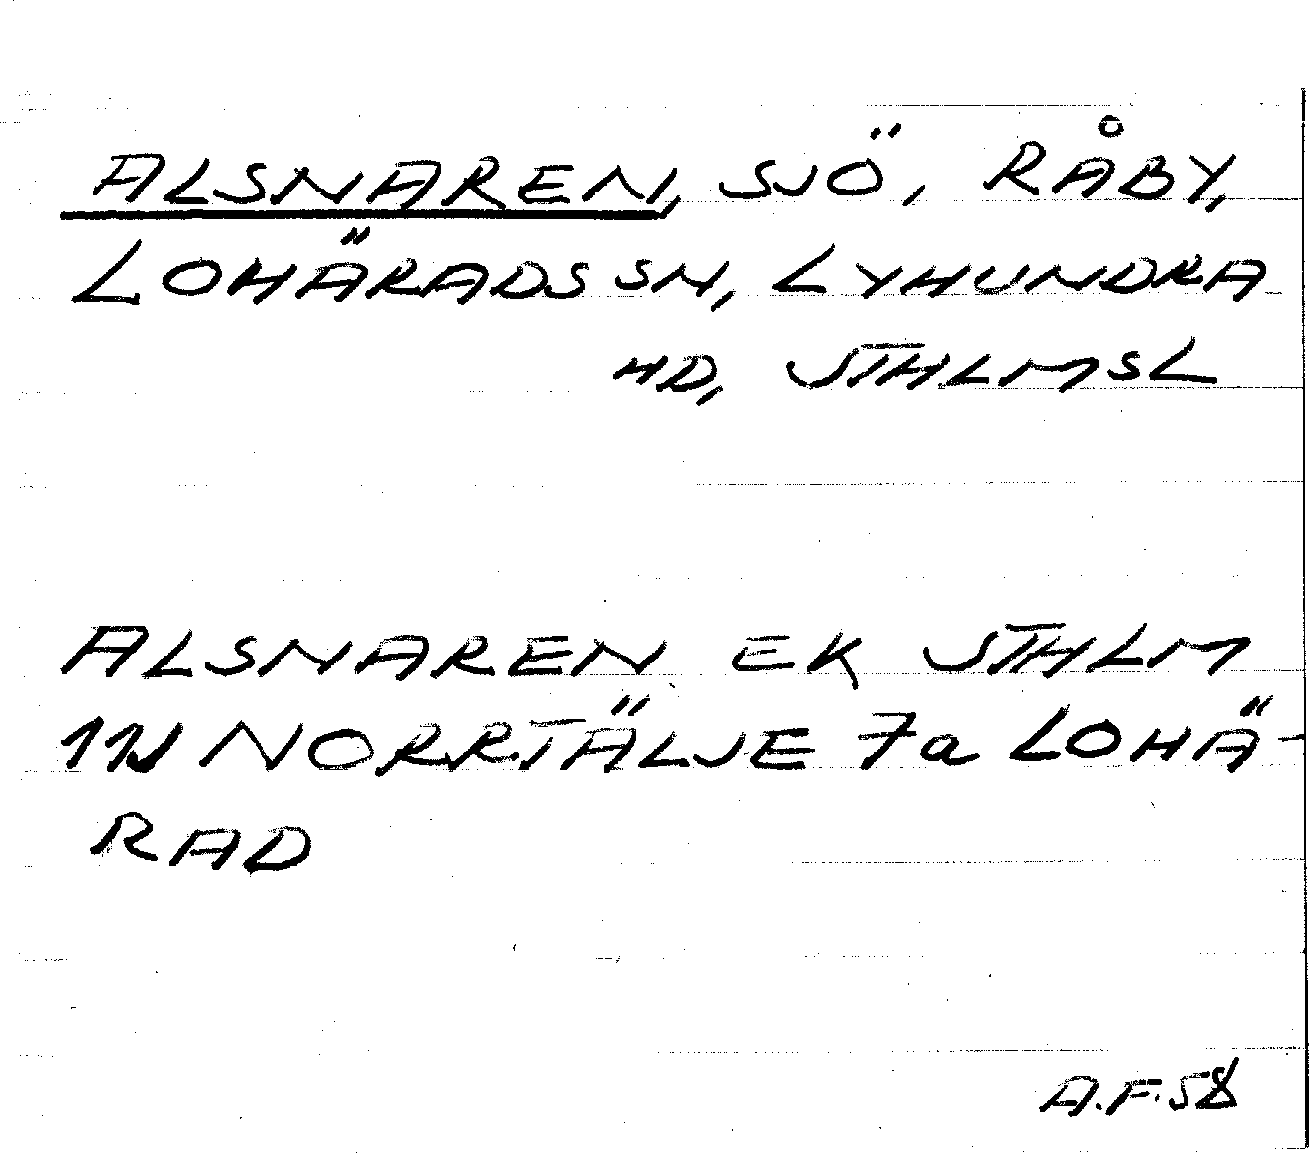 ALSNAREN, SJÖ, RÅBY,
LOHÄRADS SN, LYHUNDRA
HD, STHLMSL
ALSNAREN EK STHLM
11J NORRTÄLJE 7a LOHÄ-
RAD
A.F. 58